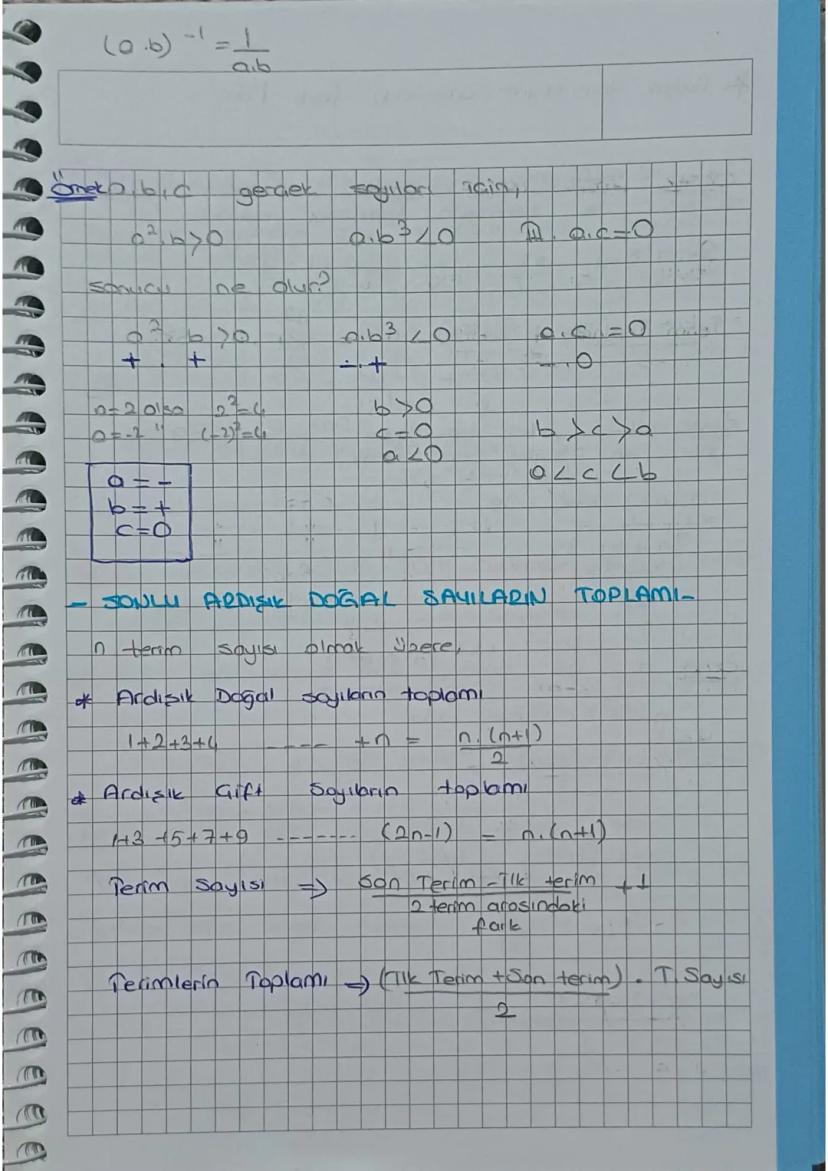 (a.b)⁻¹ = 1/a.b
Örnek a,b,c gerçek sayıları için,
a².b>0 a.b³<0 III. a.c=0
sonucu ne olur?
a².b>0 a.b³<0 a.c=0
+ . + - . + - . 0
a=2 olsa 2²=4 b>0
a=-2 " (-2)²=4 c=0 b>c>a
a<0
a = - a<c<b
b = +
c = 0
- SONLU ARDIŞIK DOĞAL SAYILARIN TOPLAMI-
n terim sayısı olmak üzere,
* Ardışık Doğal sayıların toplamı
1+2+3+4 ---- +n = n.(n+1)/2
* Ardışık Çift Sayıların toplamı
1+3+5+7+9 ------- (2n-1) = n.(n+1)
Terim Sayısı => Son Terim - İlk terim / 2 terim arasındaki fark +1
Terimlerin Toplamı => (İlk Terim + Son terim) . T. Sayısı / 2